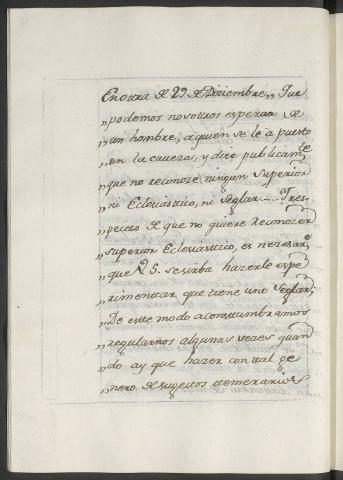 En otra de 29 de Diziembre,, Que
,,podemos nosotros esperar de
,,un hombre, a quien se le a puesto
,,en la caveza, y dize publicamte
,,que no reconoze ningun Superior
,,ni Eclesiastico, ni Seglar... Res-
,,pecto de que no quiere Reconozer
,,superior Eclesiastico, es nezesaro
,,que V. S. se sirba hazerle espe
,,rimentar que tiene uno Seglar;
,,De este modo acostumbramos
,,reglarnos algunas vezes quan
,,do ay que hazer con tal ge
,,nero de sugetos temerarios